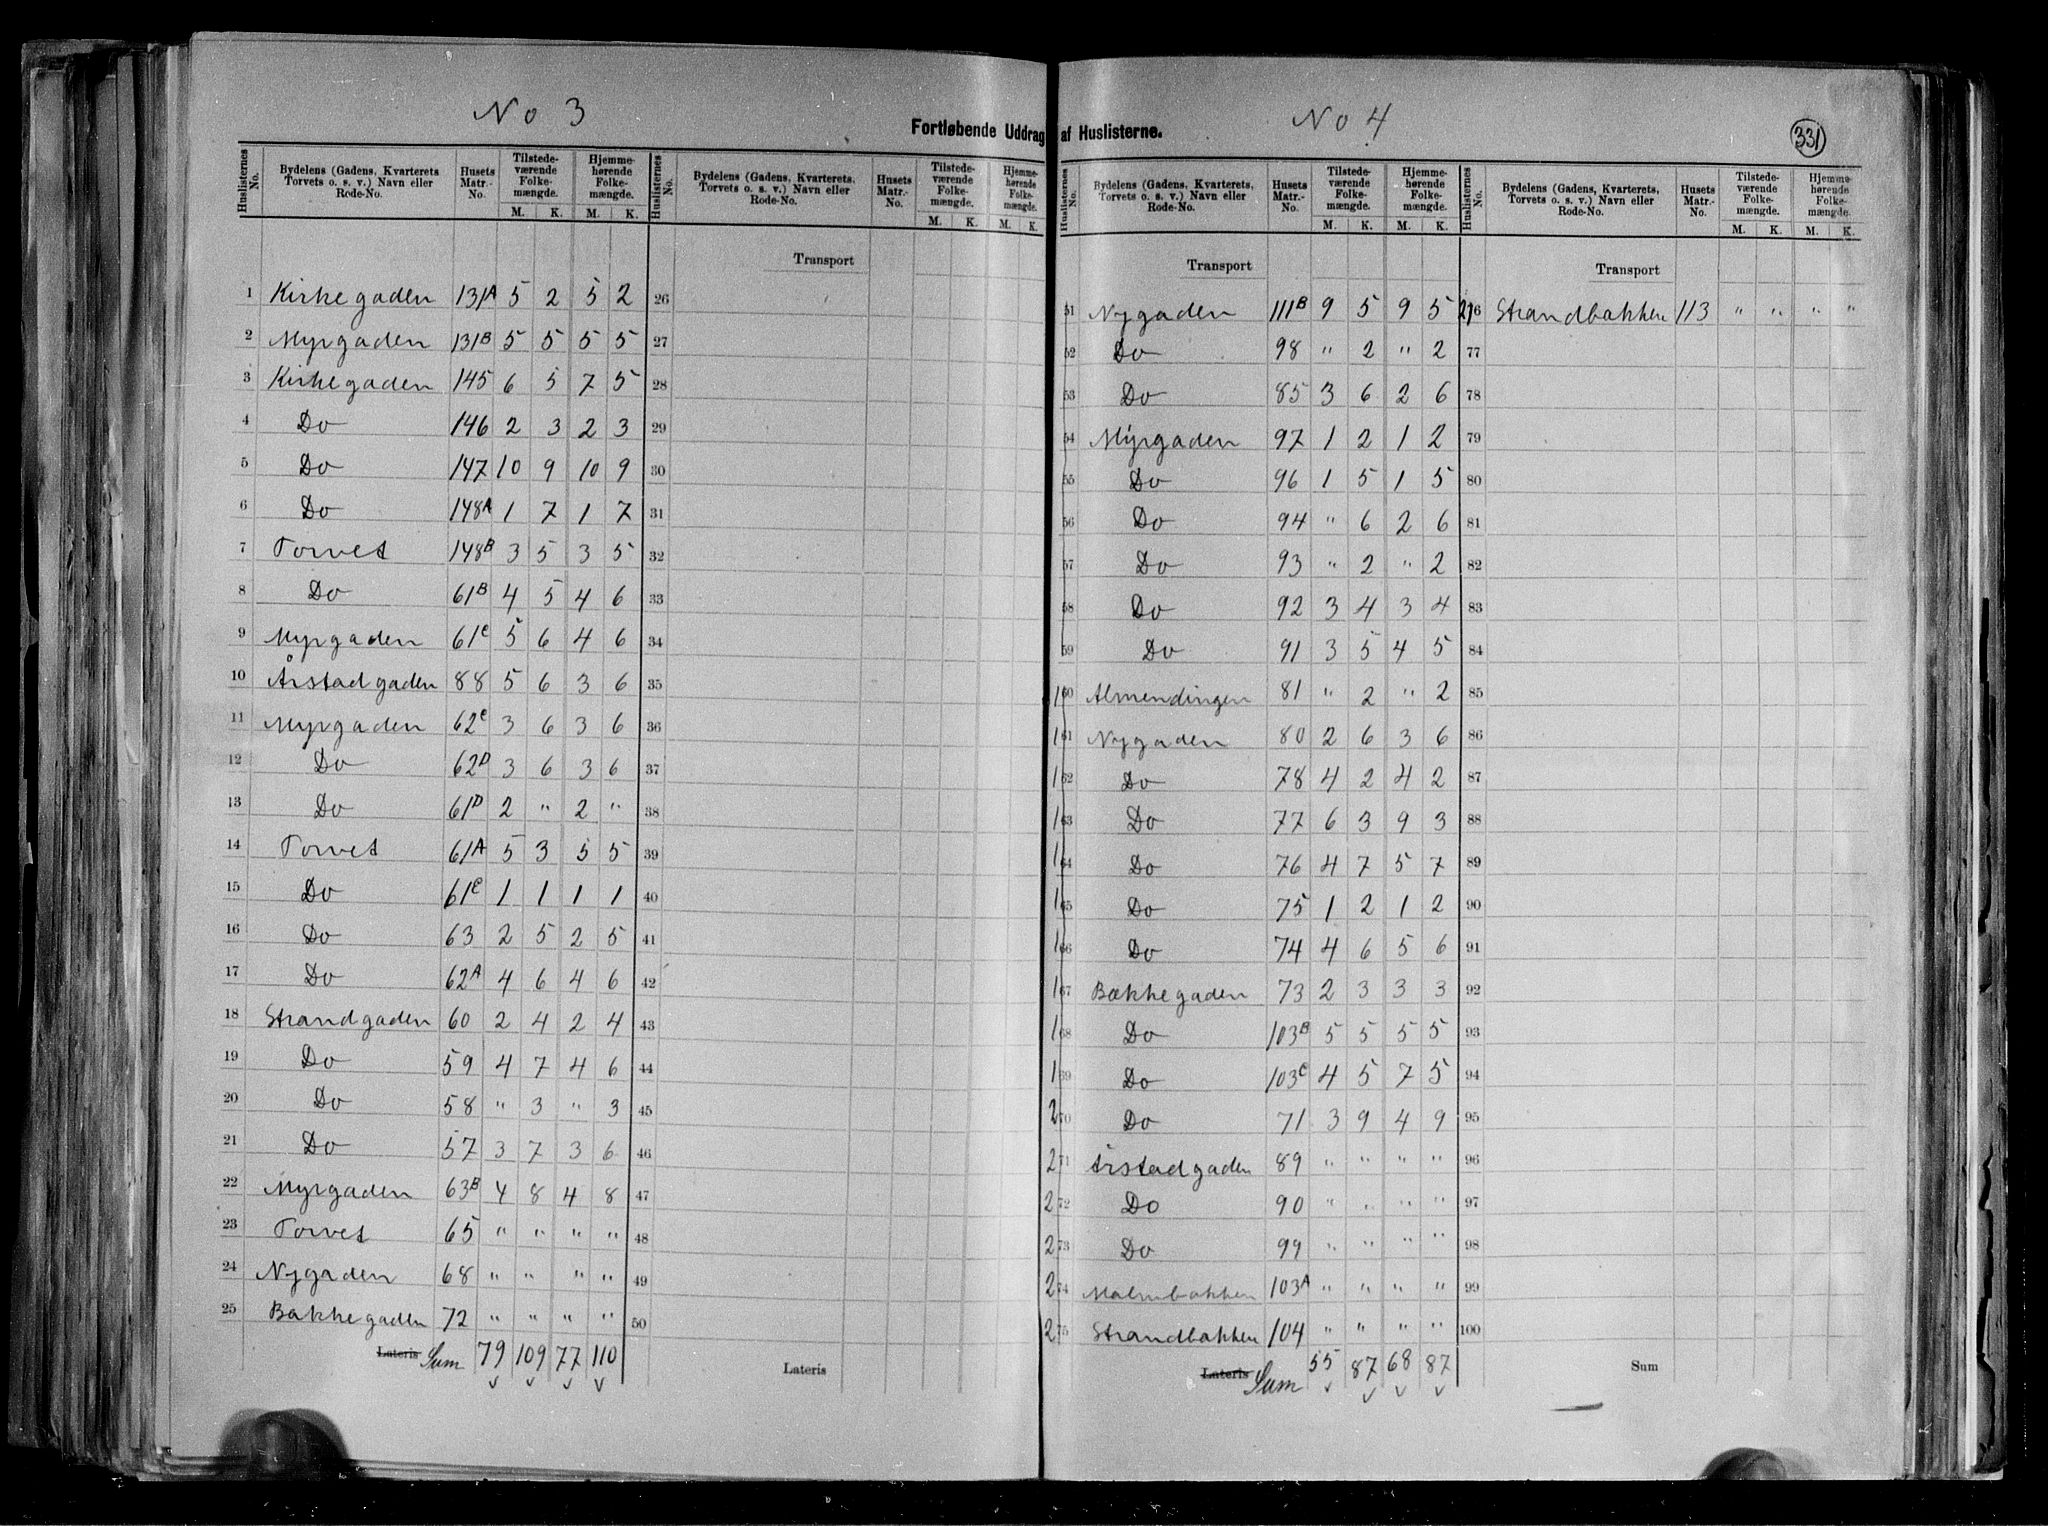 No 3
Fortløbende Uddrag
Huslisternes No. | Bydelens (Gadens, Kvarterets Torvets o. s. v.) Navn eller Rode-No. | Husets Matr.-No. | Tilstedeværende Folkemængde. M. K. | Hjemmehørende Folkemængde. M. K. | Huslisternes No. | Bydelens (Gadens, Kvarterets, Torvets o. s. v.) Navn eller Rode-No. | Husets Matr.-No. | Tilstedeværende Folkemængde. M. K. | Hjemmehørende Folkemængde. M. K.
Transport
1 Kirkegaden 131A 5 2 5 2 26
2 Myrgaden 131B 5 5 5 5 27
3 Kirkegaden 145 6 5 7 5 28
4 Do 146 2 3 2 3 29
5 Do 147 10 9 10 9 30
6 Do 148A 1 7 1 7 31
7 Torvet 148B 3 5 3 5 32
8 Do 61B 4 5 4 6 33
9 Myrgaden 61C 5 6 4 6 34
10 Årstadgaden 88 5 6 3 6 35
11 Myrgaden 62C 3 6 3 6 36
12 Do 62D 3 6 3 6 37
13 Do 61D 2 " 2 " 38
14 Torvet 61A 5 3 5 5 39
15 Do 61C 1 1 1 1 40
16 Do 63 2 5 2 5 41
17 Do 62A 4 6 4 6 42
18 Strandgaden 60 2 4 2 4 43
19 Do 59 4 7 4 6 44
20 Do 58 " 3 " 3 45
21 Do 57 3 7 3 6 46
22 Myrgaden 63B 4 8 4 8 47
23 Torvet 65 " " " " 48
24 Nygaden 68 " " " " 49
25 Bakkegaden 72 " " " " 50
Lateris Sum 79 109 77 110
Lateris
No 4
331
af Huslisterne.
Huslisternes No. | Bydelens (Gadens, Kvarterets, Torvets o. s. v.) Navn eller Rode-No. | Husets Matr.-No. | Tilstedeværende Folkemængde. M. K. | Hjemmehørende Folkemængde. M. K. | Huslisternes No. | Bydelens (Gadens, Kvarterets, Torvets o. s. v.) Navn eller Rode-No. | Husets Matr.-No. | Tilstedeværende Folkemængde. M. K. | Hjemmehørende Folkemængde. M. K.
Transport Transport
51 Nygaden 111B 9 5 9 5 276 Strandbakken 113 " " " "
52 Do 98 " 2 " 2 77
53 Do 85 3 6 2 6 78
54 Myrgaden 97 1 2 1 2 79
55 Do 96 1 5 1 5 80
56 Do 94 " 6 2 6 81
57 Do 93 " 2 " 2 82
58 Do 92 3 4 3 4 83
59 Do 91 3 5 4 5 84
160 Almendingen 81 " 2 " 2 85
161 Nygaden 80 2 6 3 6 86
162 Do 78 4 2 4 2 87
163 Do 77 6 3 9 3 88
164 Do 76 4 7 5 7 89
165 Do 75 1 2 1 2 90
166 Do 74 4 6 5 6 91
167 Bakkegaden 73 2 3 3 3 92
168 Do 103B 5 5 5 5 93
169 Do 103C 4 5 7 5 94
270 Do 71 3 9 4 9 95
271 Årstadgaden 89 " " " " 96
272 Do 90 " " " " 97
273 Do 99 " " " " 98
274 Malmbakken 103A " " " " 99
275 Strandbakken 104 " " " " 100
Lateris Sum 55 87 68 87 Sum